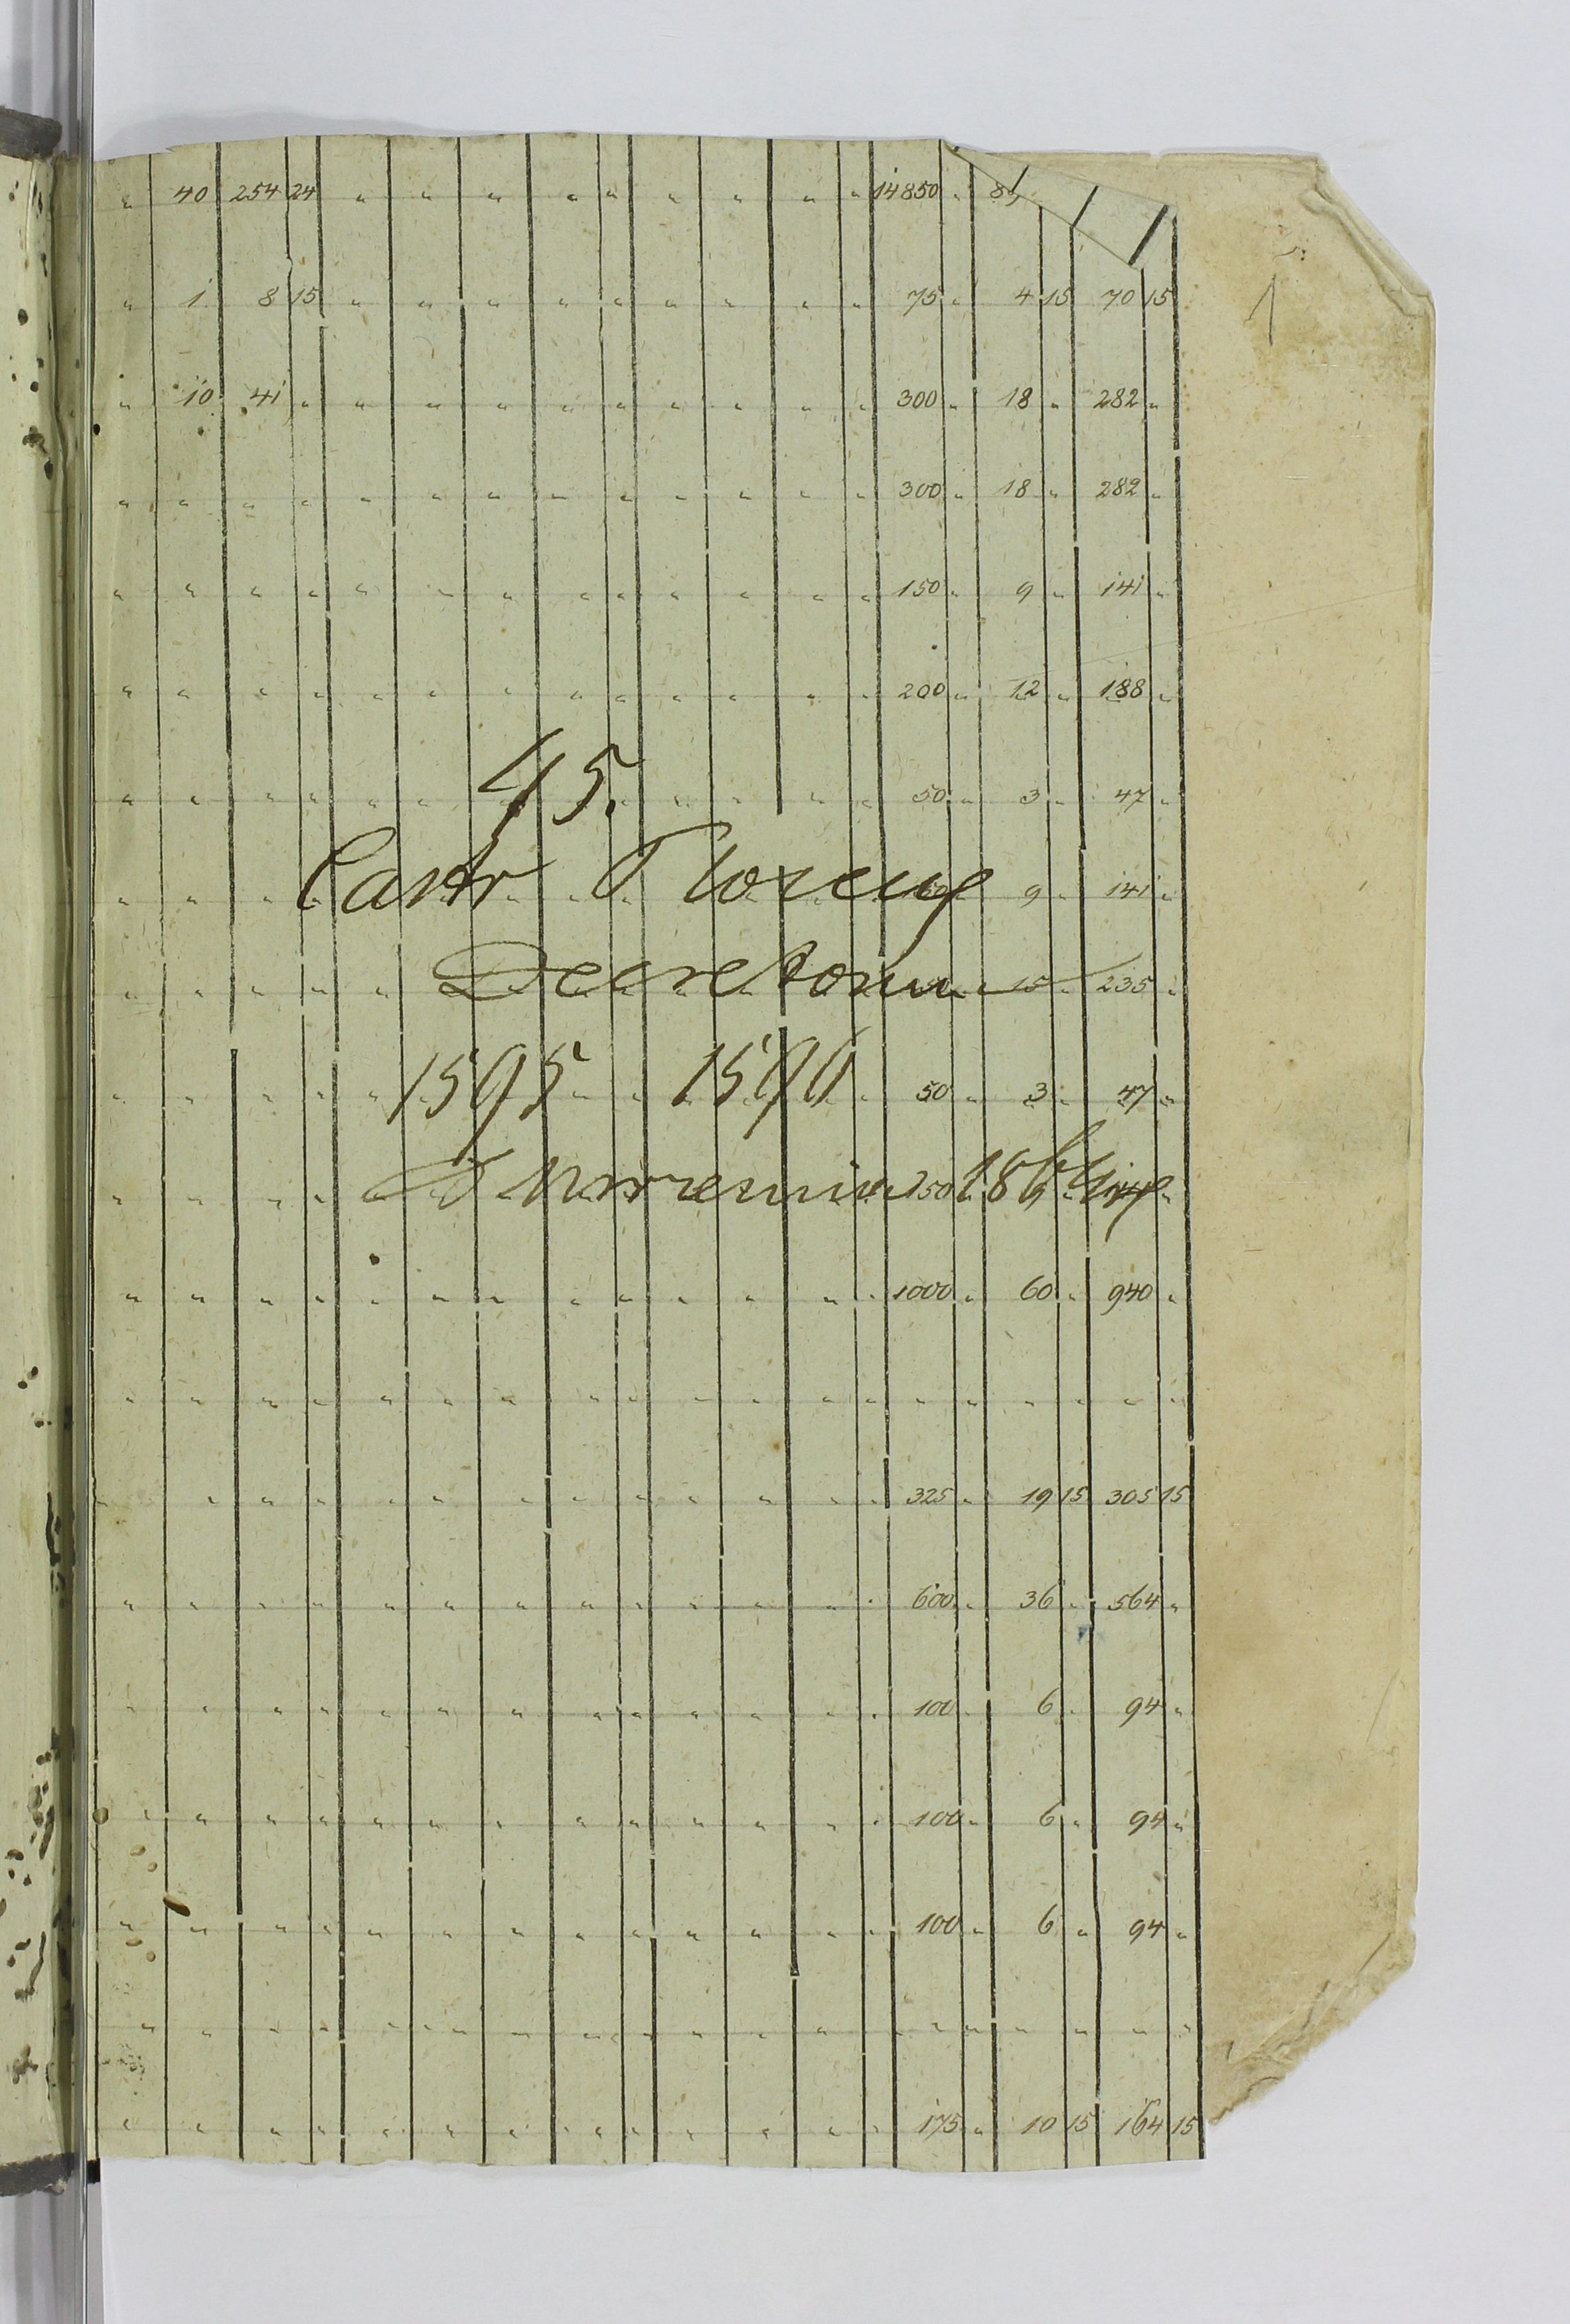 " 40 254 24 " " " " " " " " " 14850 "
" 1 8 15 " " " " " " " " " 75 " 4 15 70 15
" 10 41 " " " " " " " " " " 300 " 18 " 282 "
" " " " " " " " " " " " " 300 " 18 " 282 "
" " " " " " " " " " " " " 150 " 9 " 141 "
" " " " " " " " " " " " " 200 " 12 " 188 "
45.
50 " 3 " 47 "
Castr
9 " 141 "
Decretorum
15 " 235 "
1595 1596
50 " 3 " 47 "
150
" " " " " " " " " " " " " 1000 " 60 " 940 "
" " " " " " " " " " " " " " " " " " "
" " " " " " " " " " " " 325 " 19 15 305 15
" " " " " " " " " " " " " 600 " 36 " 564 "
" " " " " " " " " " " " " 100 " 6 " 94 "
" " " " " " " " " " " " " 100 " 6 " 94 "
" " " " " " " " " " " " " 100 " 6 " 94 "
" " " " " " " " " " " " " " " " " " "
" " " " " " " " " " " " " 175 " 10 15 164 15
1